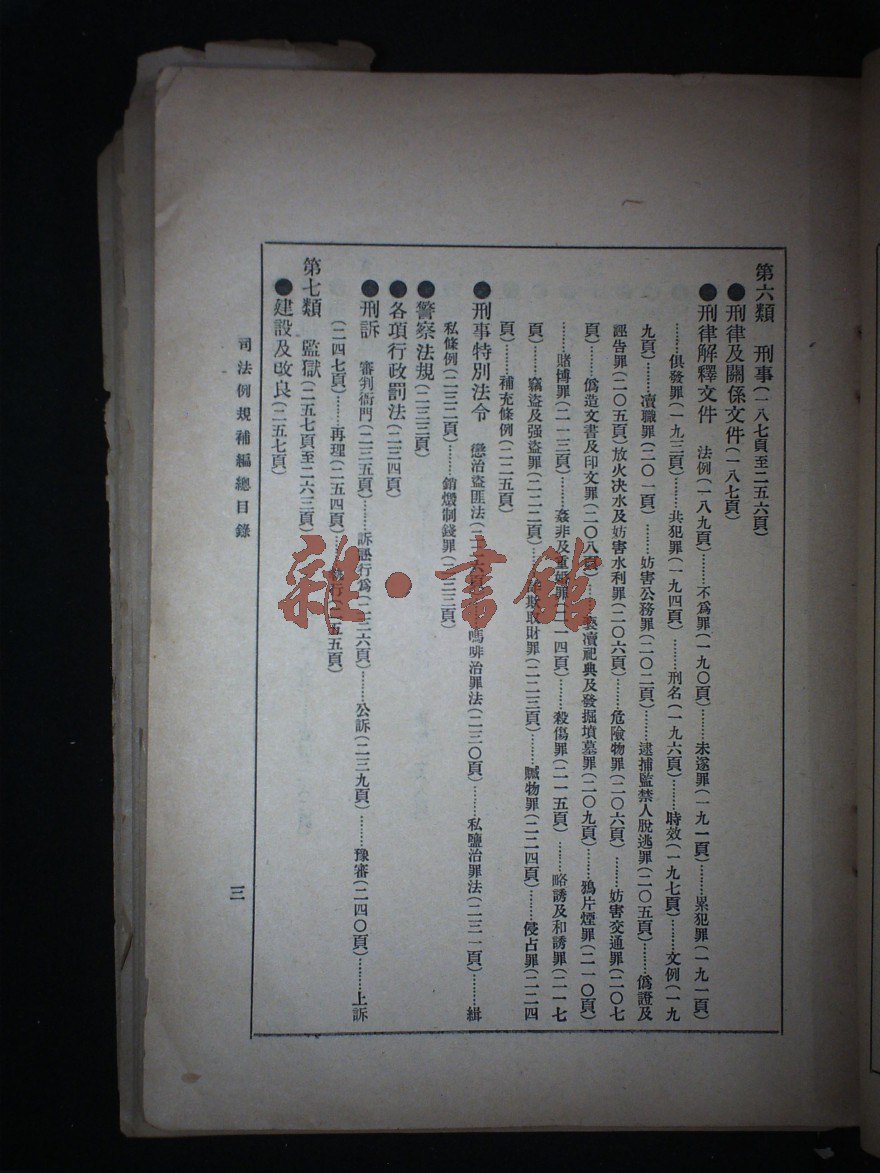 第六類　刑事(一八七頁至二五六頁)
●刑律及關係文件(一八七頁)
●刑律解釋文件　法例(一八九頁)………不爲罪(一九〇頁)………未遂罪(一九一頁)………累犯罪(一九一頁)
………俱發罪(一九三頁)………共犯罪(一九四頁)………刑名(一九六頁)………時效(一九七頁)………文例(一九
九頁)………瀆職罪(二〇一頁)………妨害公務罪(二〇二頁)………逮捕監禁人脫逃罪(二〇五頁)………僞證及
誣告罪(二〇五頁)放火决水及妨害水利罪(二〇六頁)………危險物罪(二〇六頁)………妨害交通罪(二〇七
頁)………僞造文書及印文罪(二〇八頁)………褻瀆祀典及發掘墳墓罪(二〇九頁)………鴉片煙罪(二一〇頁)
………賭博罪(二一三頁)………姦非及重婚罪(二一四頁)………殺傷罪(二一五頁)………略誘及和誘罪(二一七
頁)………竊盜及强盜罪(二二二頁)………詐欺取財罪(二二三頁)………贓物罪(二二四頁)………侵占罪(二二四
頁)………補充條例(二二五頁)
●刑事特別法令　懲治盜匪法(二二六頁)………嗎啡治罪法(二三〇頁)………私鹽治罪法(二三一頁)………緝
私條例(二三二頁)………銷燬制錢罪(二三三頁)
●警察法規(二三三頁)
●各項行政罰法(二三四頁)
●刑訴　審判衙門(二三五頁)………訴訟行爲(二三六頁)………公訴(二三九頁)………豫審(二四〇頁)………上訴
(二四七頁)………再理(二五四頁)………執行(二五五頁)
第七類　監獄(二五七頁至二六三頁)
●建設及改良(二五七頁)
司法例規補編總目錄
三
雜·書館